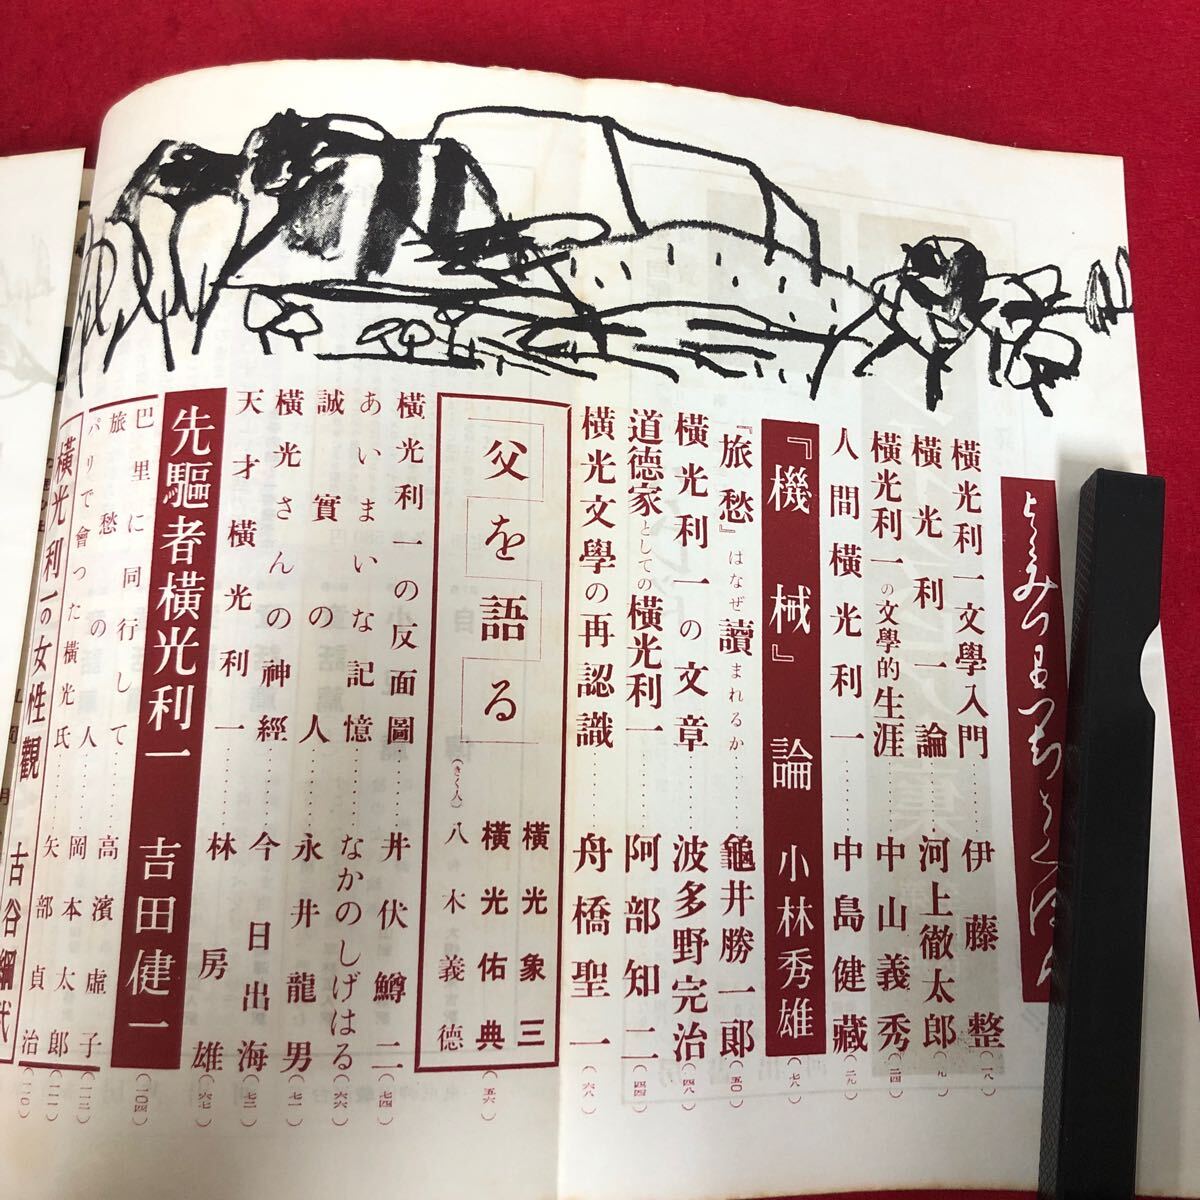 横光利一文學入門……伊藤整(一八)
横光利一論……河上徹太郎
横光利一の文學的生涯……中山義秀(二四)
人間横光利一……中島健藏(二九)
『機械』論 小林秀雄(七八)
『旅愁』はなぜ讀まれるか……龜井勝一郎(五〇)
横光利一の文章……波多野完治(四八)
道德家としての横光利一……阿部知二(四四)
横光文學の再認識……舟橋聖一(六八)
父を語る
横光象三
横光佑典
(きく人)八木義德
(五六)
横光利一の反面圖……井伏鱒二(七四)
あいまいな記憶……なかのしげはる(六六)
誠實の人……永井龍男(七一)
横光さんの神經……今日出海(七二)
天才横光利一……林房雄(六七)
先驅者横光利一 吉田健一(一〇四)
巴里に同行して……高濱虚子(一一二)
旅愁の人……岡本太郎(一一一)
パリで會つた横光氏……矢部貞治(一一〇)
横光利一の女性觀 古谷綱武